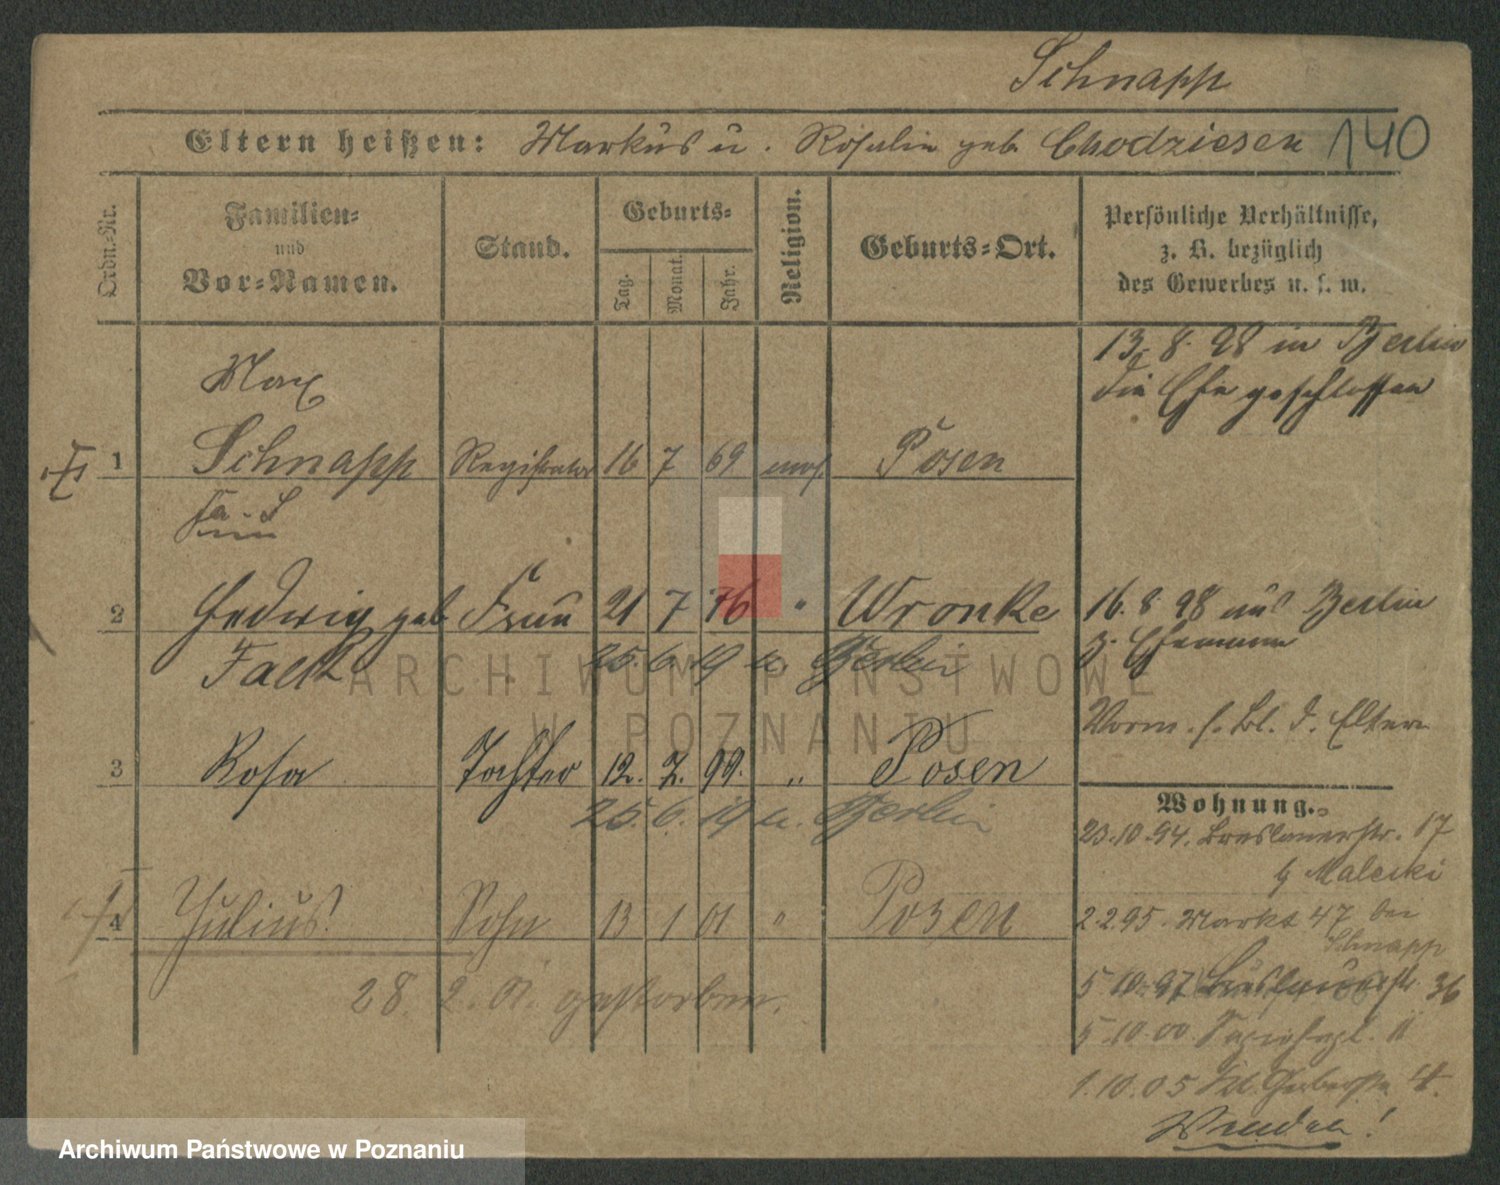 Schnapp
Eltern heißen: Markus u. Rosalie geb. Chodziesen 140
Ordn.-Nr.
Familien-
und
Vor-Namen.
Stand.
Geburts-
Tag.
Monat.
Jahr.
Religion.
Geburts-Ort.
Persönliche Verhältnisse,
z. B. bezüglich
des Gewerbes u. s. w.
13. 8. 98 in Berlin
die Ehe geschlossen
Max
1 Schnapp Registrator 16 7 69 mos. Posen
2 Hedwig geb. Frau 21 7 76 " Wronke
16. 8. 98 aus Berlin
z. Ehemann
25. 6. 19 n. Berlin
ARCHIWUM PAŃSTWOWE
W POZNANIU
Vorm. s. Bl. d. Eltern
3 Rosa Tochter 12. 7. 99. " Posen
25. 6. 19 n. Berlin
Wohnung.
23.10.94. Breslauerstr. 17
b Malecki
2.2.95. Markt 47 bei
Schnapp
5.10.97 36
5.10.00 11
1.10.05 Kl. Gerberstr. 4.
Wenden!
4 Julius Sohn 13 1 01 " Posen
28. 2. 01. gestorben.
Archiwum Państwowe w Poznaniu